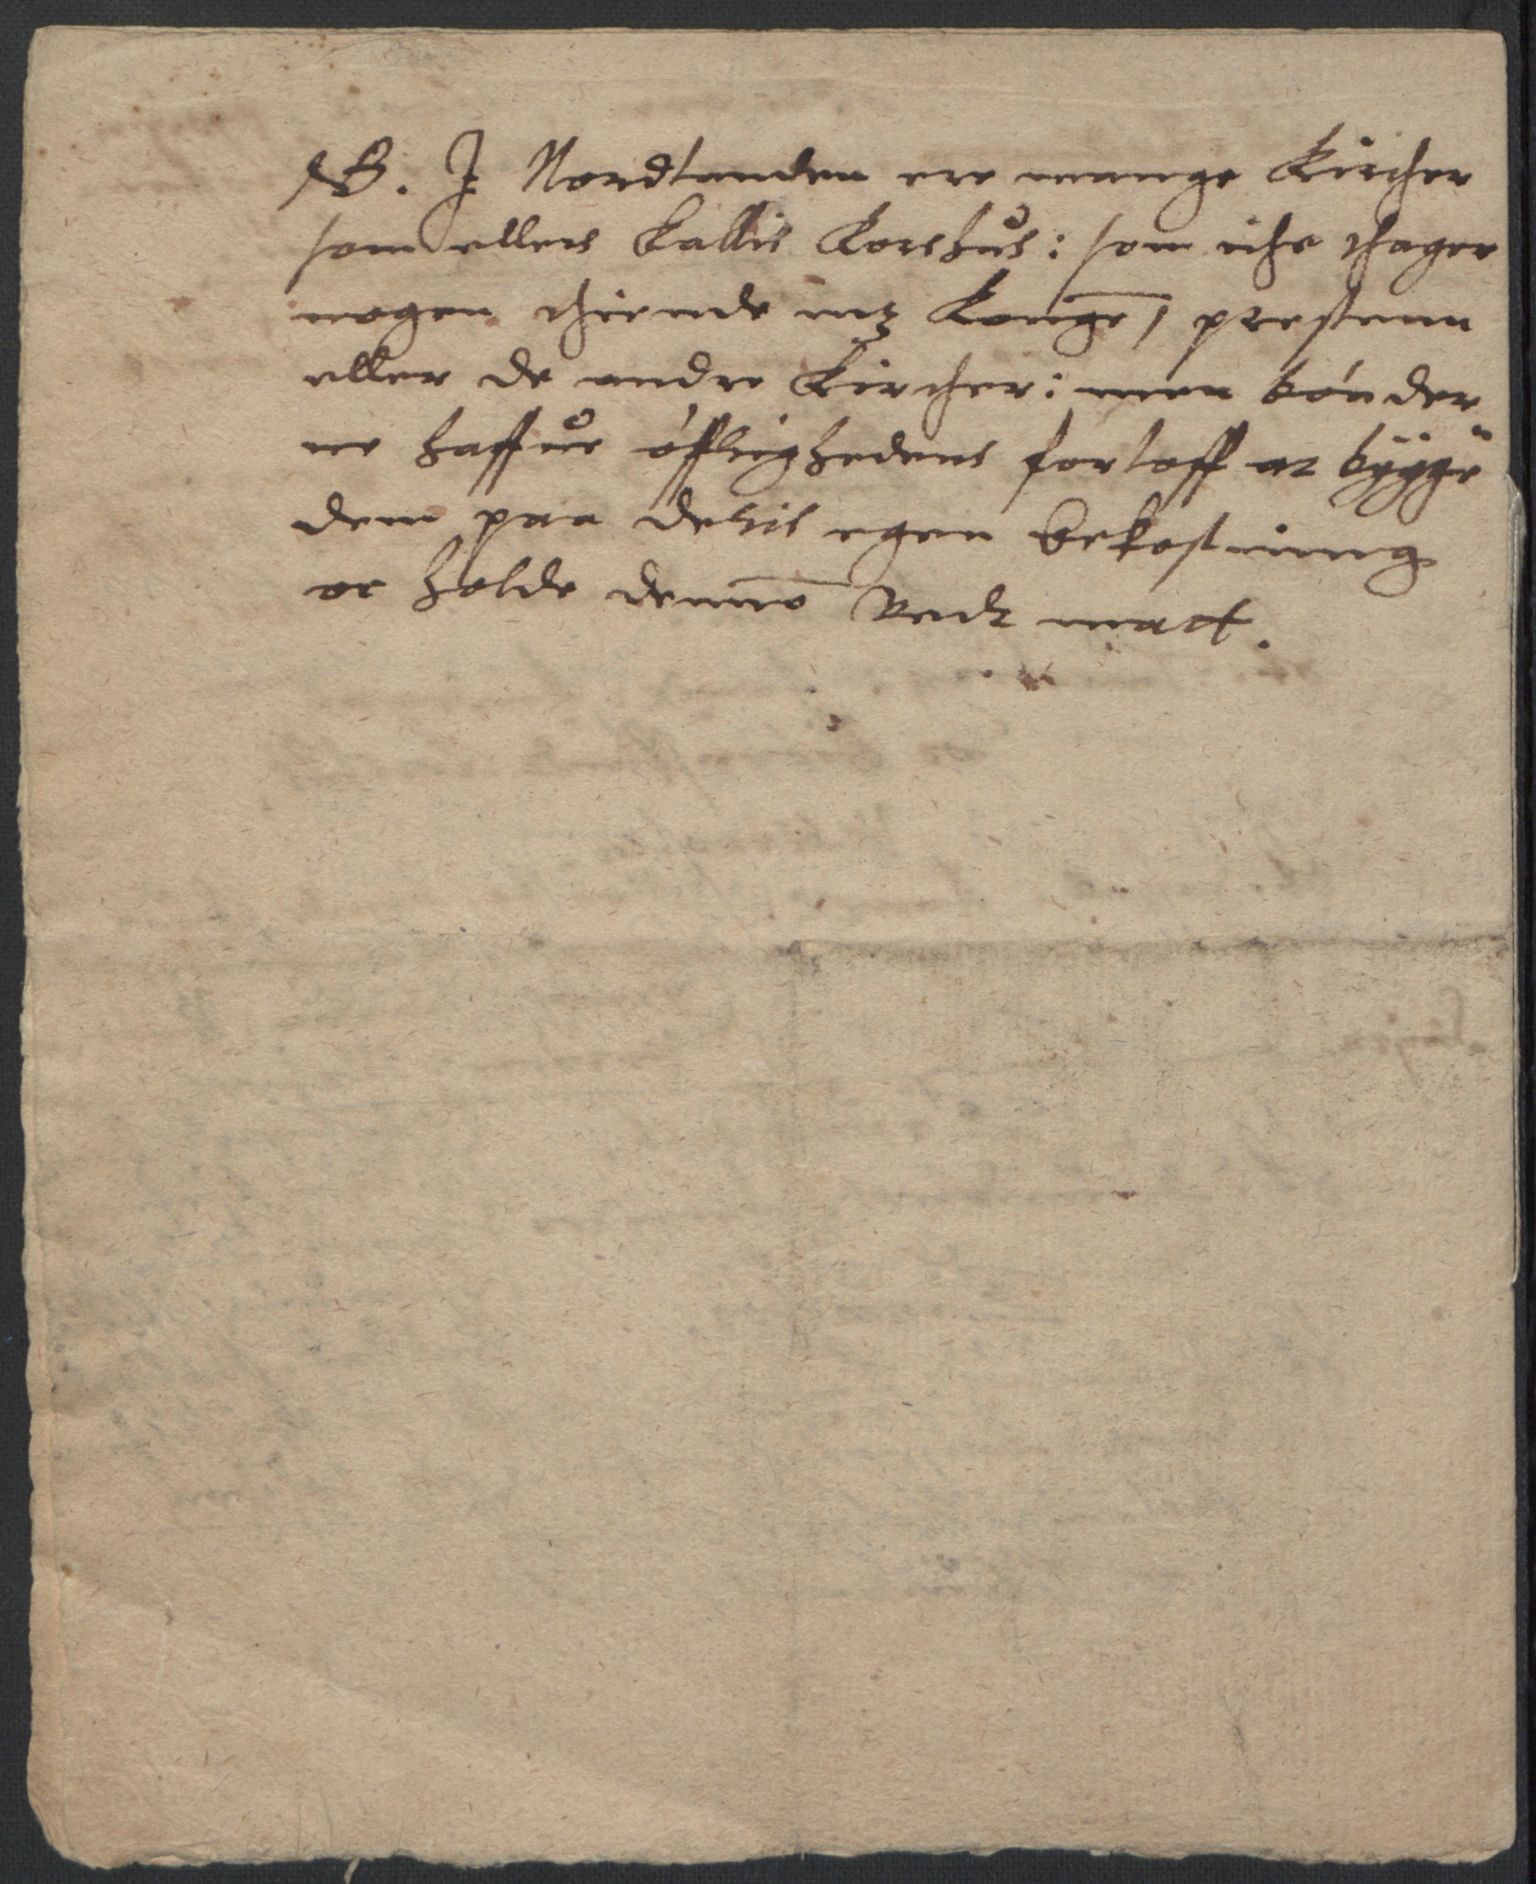 NB. J Nordlanden ere mange Kircher
som ellers kallis Korshus: som iche thager
nogen thiende mz Konge, prestenn
eller de andre Kircher: men bónder
ne haffue ófflighedens forloff at bÿgge
dem paa deris egen bekostning
oc holde dennō Vedt mact.